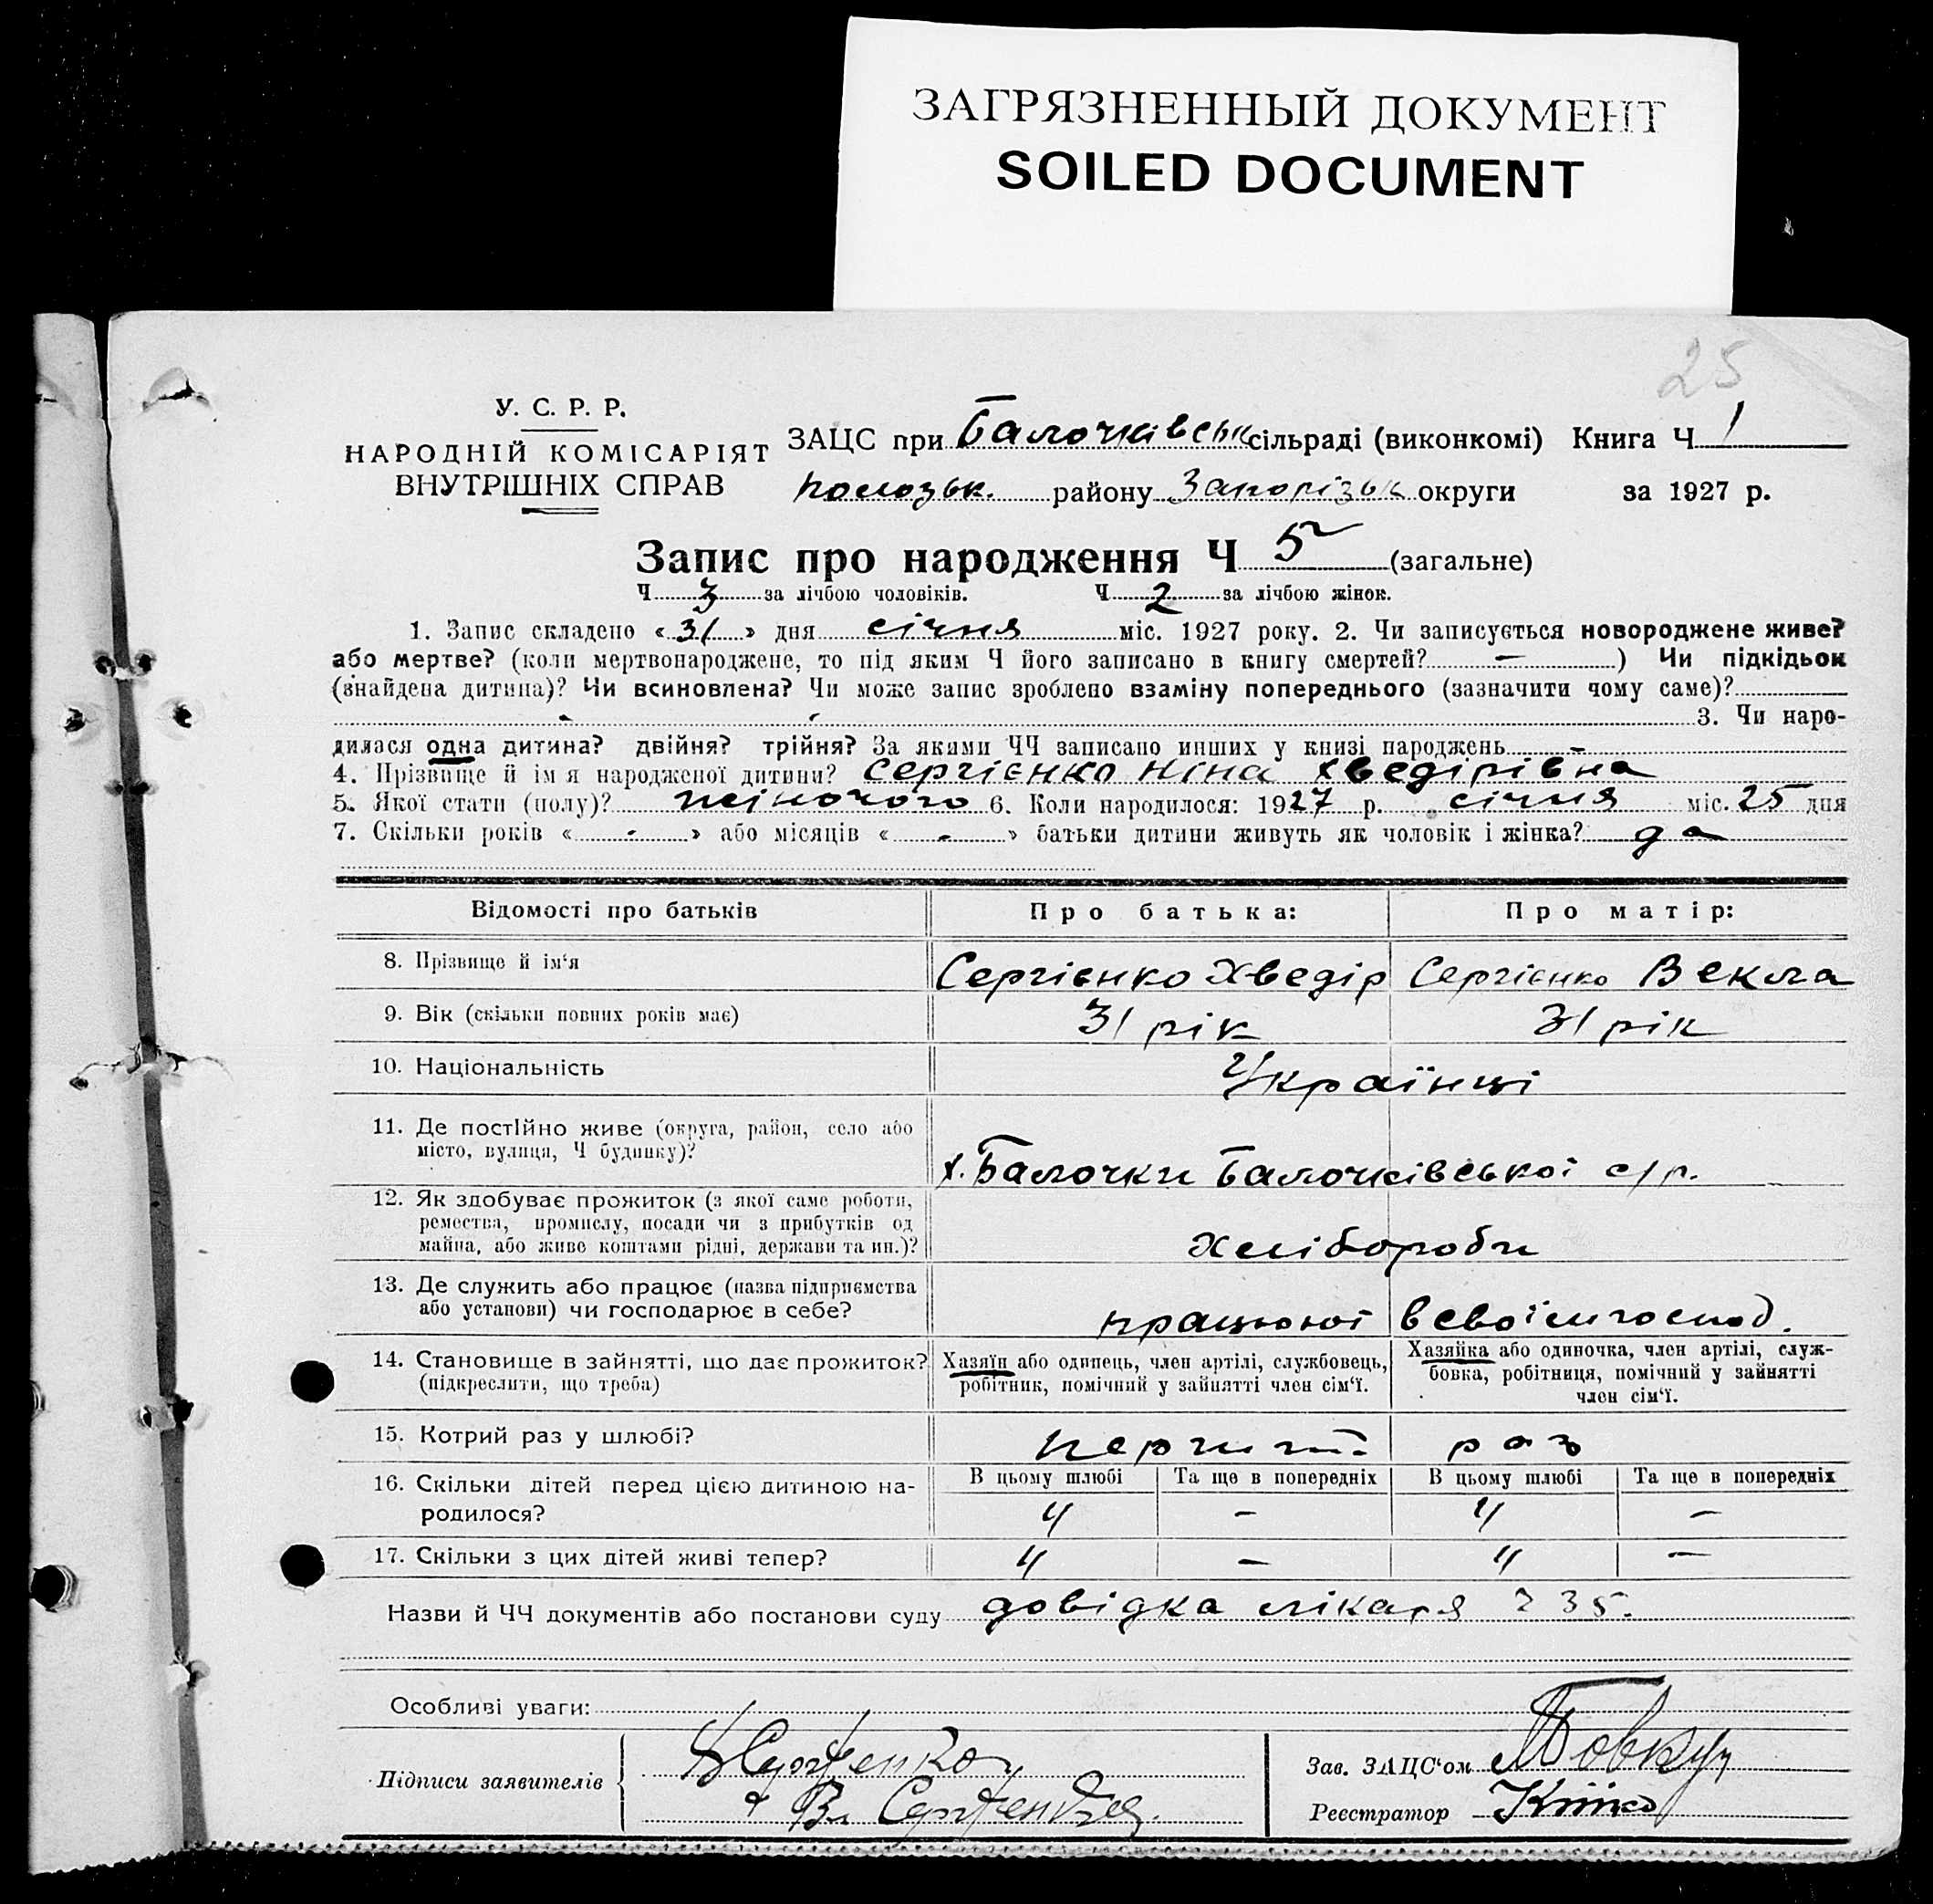 ЗАГРЯЗНЕННЫЙ ДОКУМЕНТ
SOILED DOCUMENT
25
У. С. Р. Р.
НАРОДНІЙ КОМІСАРІЯТ
ВНУТРІШНІХ СПРАВ
ЗАЦС при Балочківськ сільраді (виконкомі) Книга Ч 1
Пологзьк. району Запорізьк округи за 1927 р.
Запис про народження Ч 5 (загальне)
Ч 3 за лічбою чоловіків. Ч 2 за лічбою жінок.
1. Запис складено «31» дня січня міс. 1927 року. 2. Чи записується новороджене живе?
або мертве? (коли мертвонароджене, то під яким Ч його записано в книгу смертей? — ) Чи підкідьок
(знайдена дитина)? Чи всиновлена? Чи може запис зроблено взаміну попереднього (зазначити чому саме)?
3. Чи наро-
дилася одна дитина? двійня? трійня? За якими ЧЧ записано инших у книзі народжень -
4. Прізвище й ім'я народженої дитини? Сергієнко Ніна Хведірівна
5. Якої стати (полу)? жіночого 6. Коли народилося: 1927 р. січня міс. 25 дня
7. Скільки років « - » або місяців « - » батьки дитини живуть як чоловік і жінка? да
Відомості про батьків Про батька: Про матір:
8. Прізвище й ім'я Сергієнко Хведір Сергієнко Векла
9. Вік (скільки повних років має) 31 рік 31 рік
10. Національність Українці
11. Де постійно живе (округа, район, село або
місто, вулиця, Ч будинку)? х. Балочки Балочківської с/р.
12. Як здобуває прожиток (з якої саме роботи,
ремества, промислу, посади чи з прибутків од
майна, або живе коштами рідні, держави та ин.)? Хлібороби
13. Де служить або працює (назва підприємства
або установи) чи господарює в себе? працюют в своїм господ.
14. Становище в зайнятті, що дає прожиток?
(підкреслити, що треба)
Хазяїн або одинець, член артілі, службовець,
робітник, помічний у зайнятті член сім'ї.
Хазяйка або одиночка, член артілі, служ-
бовка, робітниця, помічний у зайнятті
член сім'ї.
15. Котрий раз у шлюбі? перший раз
В цьому шлюбі Та ще в попередніх В цьому шлюбі Та ще в попередніх
16. Скільки дітей перед цією дитиною на-
родилося? 4 - 4 -
17. Скільки з цих дітей живі тепер? 4 - 4 -
Назви й ЧЧ документів або постанови суду довідка лікаря Ч 35.
Особливі уваги:
Підписи заявителів
Зав. ЗАЦС'ом
Реєстратор